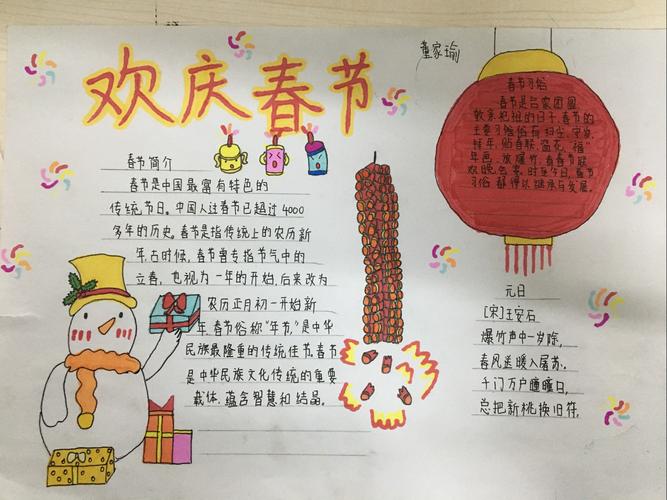 欢庆春节
董家瑜
春节简介
春节是中国最富有特色的
传统节日。中国人过春节已超过4000
多年的历史。春节是指传统上的农历新
年,古时候,春节曾专指节气中的
立春,也视为一年的开始,后来改为
农历正月初一开始新
年,春节俗称"年节",是中华
民族最隆重的传统佳节。春节
是中华民族文化传统的重要
载体,蕴含智慧和结晶。
春节习俗
春节是合家团圆
敦亲祀祖的日子,春节的
主要习俗俗有扫尘、守岁、
拜年、贴春联、窗花、"福"
年画、放爆竹、看春节联
欢晚会等。时至今日,春节
习俗都得以继承与发展。
元日
[宋]王安石
爆竹声中一岁除,
春风送暖入屠苏。
千门万户曈曈日,
总把新桃换旧符。